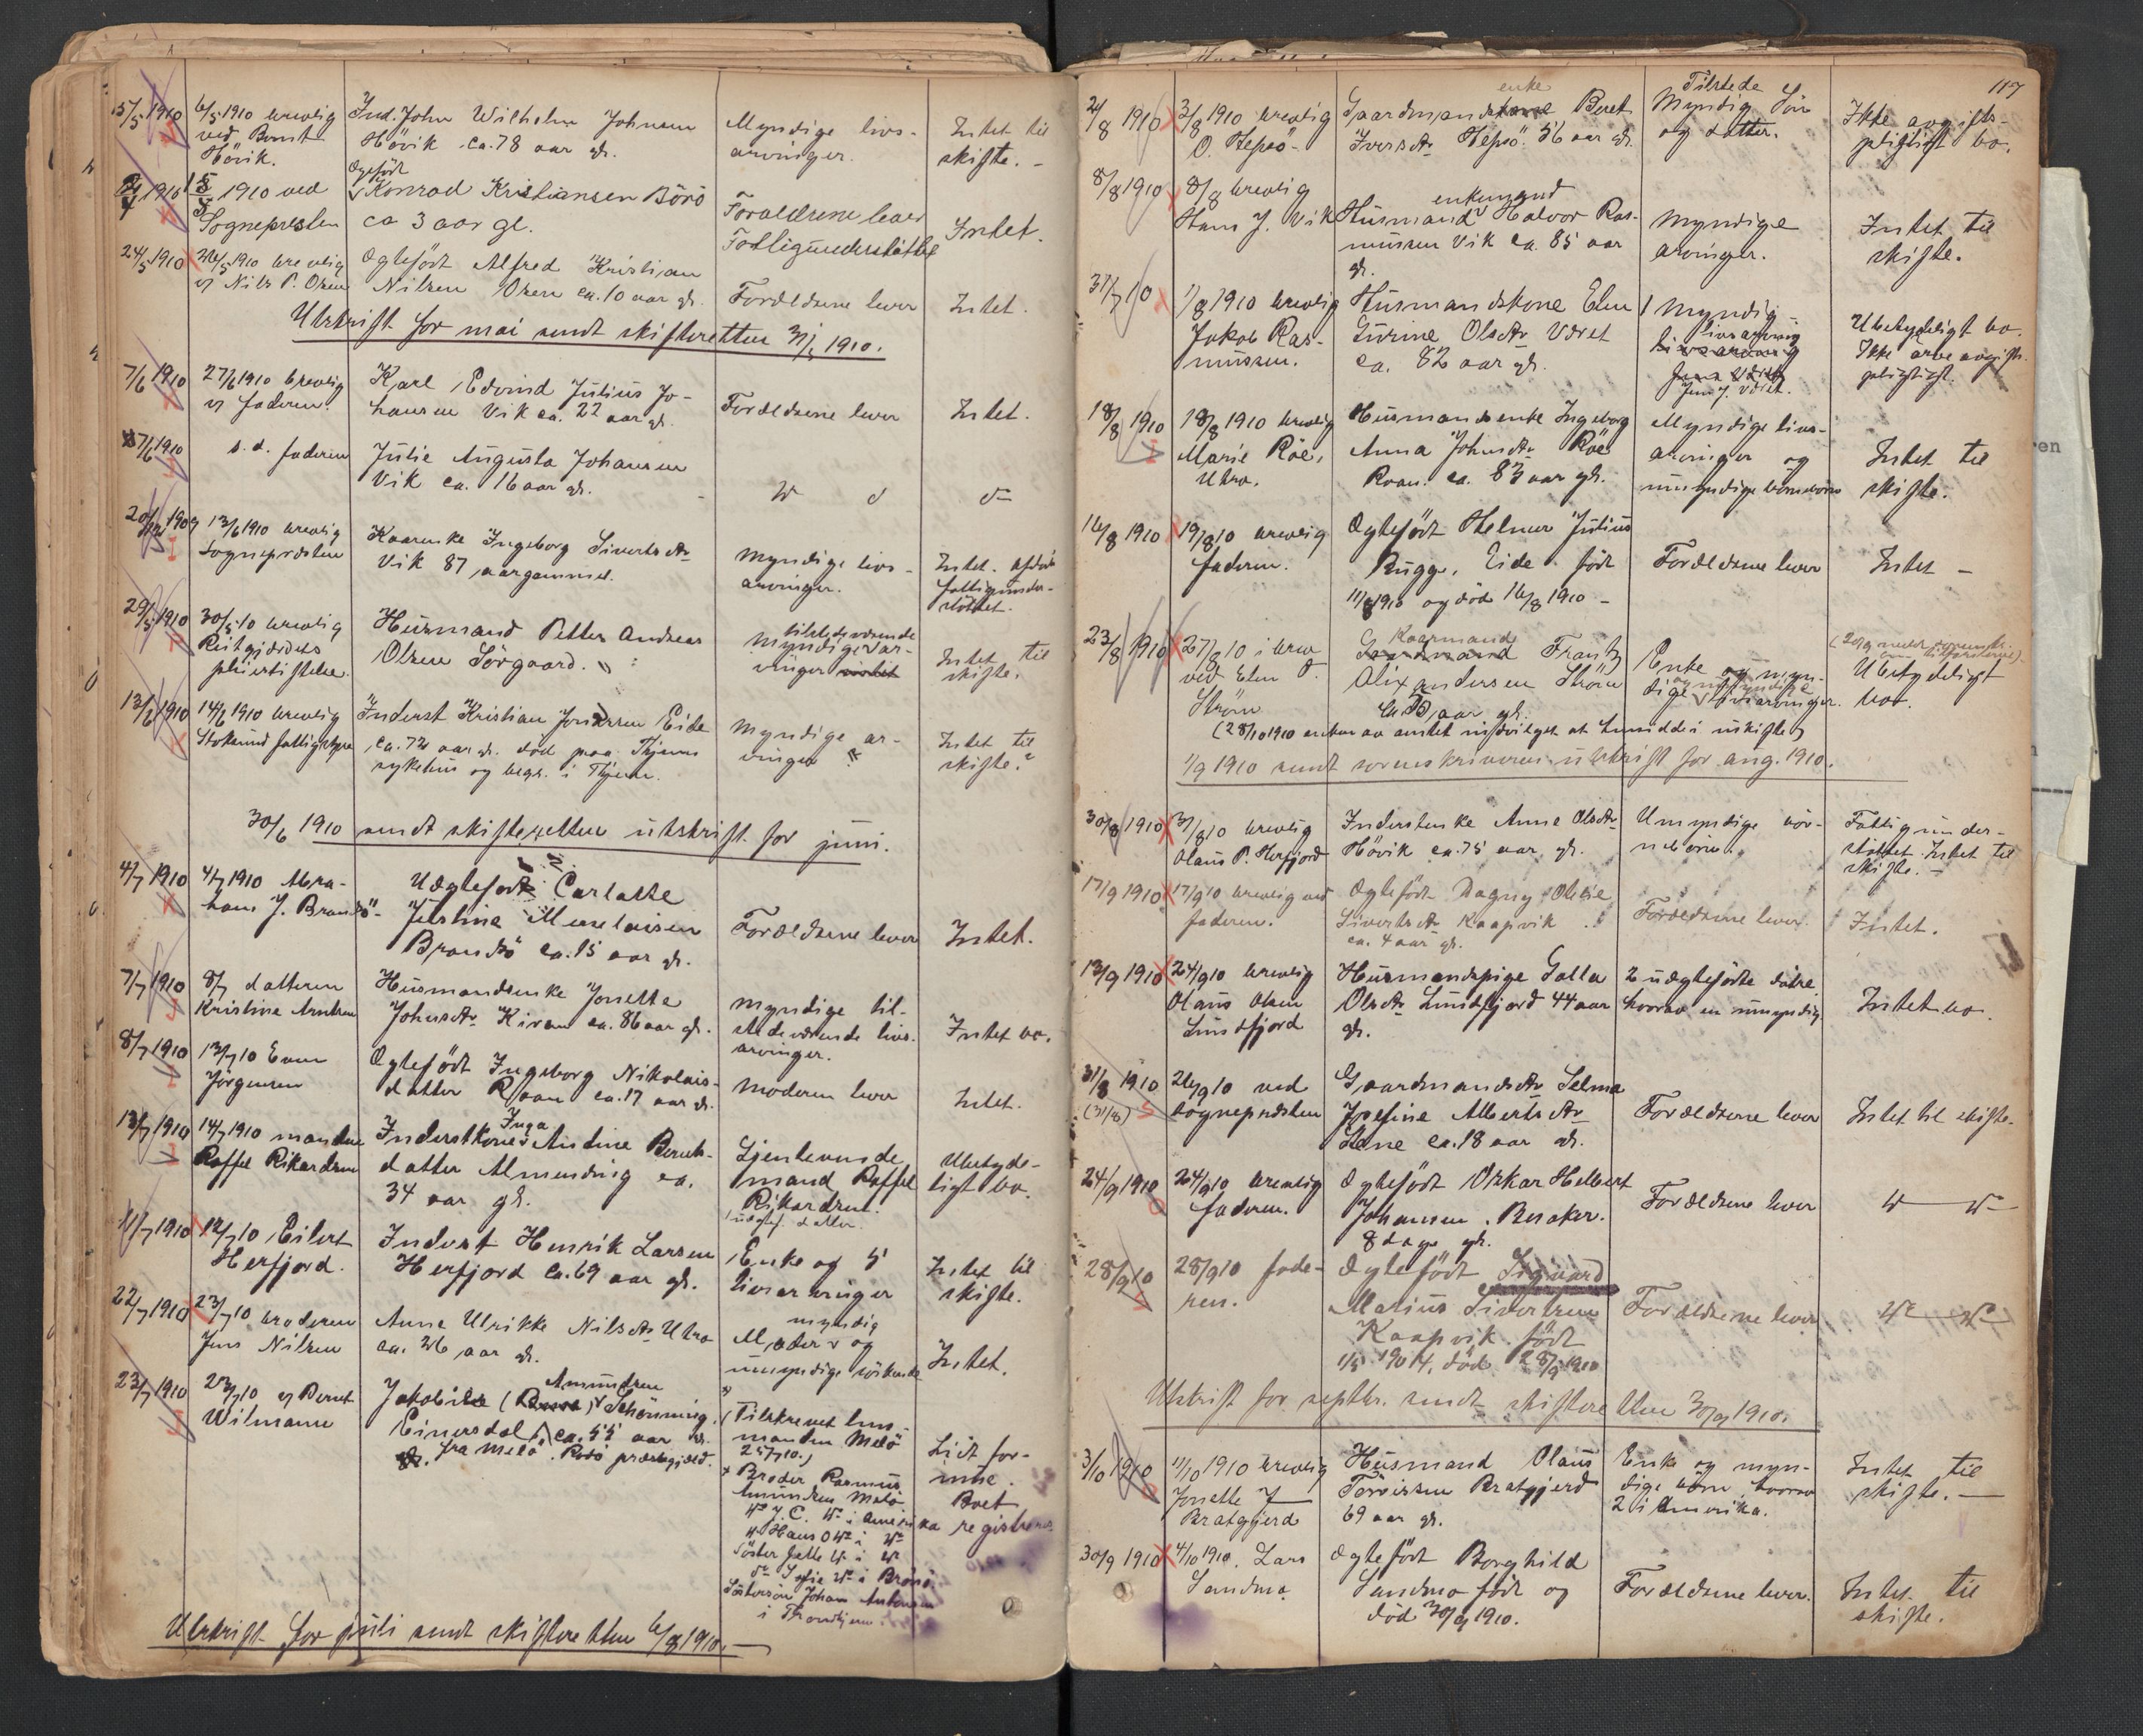 5/5 1910
6/5 1910 brevlig
ved Bernt
Hövik.
Ind. John Wilhelm Johnsen
Hövik ca. 78 aar gl.
Myndige livs-
arvinger.
Intet til
skifte. -
1910 ved
Sognepresten
Ogtefödt
Konrad Kristiansen Börö
ca 3 aar gl.
Forældrene lever
Fattigunderstöttet
Intet.
24/5 1910
26/5 1910 brevlig
v/ Nils P. Osen
Ogtefödt Alfred Kristian
Nilsen Osen ca. 10 aar gl.
Forældrene lever
Intet.
Utskrift for mai sendt skifteretten 31/5 1910.
7/6 1910
27/6 1910 brevlig
v/ faderen.
Karl Edvind Julius Jo-
hansen Vik ca. 22 aar gl.
Forældrene lever
Intet.
1910
s. d. faderen
Julie Augusta Johansen
Vik ca. 16 aar gl.
do do
do
1909
13/6 1910 brevlig
Sognepresten
Kaarenke Ingeborg Sivertsdtr
Vik 87 aar gammel.
Myndige livs-
arvinger.
Intet. Afdöde
fattigunder-
stöttet.
29/5 1910
30/5 10 brevlig
Reitgjærdets
pleiestiftelse.
Husmand Petter Andreas
Olsen Sörgaard.
tilstedeværende
Myndige ar-
vinger
Intet til
skifte.
13/6 1910
14/6 1910 brevlig
Stoksund fattigstyre
Inderst Kristian Jonsen Eide
ca. 72 aar gl. död paa Thjems
sykehus og begr. i Thjem.
Myndige ar-
vinger ?
Intet til
skifte?
30/6 1910 sendt skifteretten utskrift for juni.
4/7 1910
4/7 1910 Abra-
ham J. Brandsö
Uægtefödt Carlotte
Jelstine Meselaisen
Brandsö ca. 15 aar gl.
Forældrene lever
Intet.
7/7 1910
8/7 datteren
Kristine Arntsen
Husmandsenke Jonette
Johnsdtr Kiran ca. 86 aar gl.
Myndige til-
stedeværende livs-
arvinger.
Intet bo.
8/7 1910
13/7 10 Even
Jörgensen
Ogtefödt Ingeborg Nikolais-
datter Roan ca. 17 aar gl.
Moderen lever
Intet.
13/7 1910
14/7 1910 manden
Roffel Rikardsen
Inga
Inderstkone Andine Bernts-
datter Almenning ca.
34 aar gl.
Gjenlevende
mand Roffel
Rikardsen.
1 uægtef. datter
Ubetyde-
ligt bo.
11/7 1910
12/7 10 Eilert
Herfjord.
Inderst Henrik Larsen
Herfjord ca. 69 aar gl.
Enke og 5
livsarvinger
Intet til
skifte.
22/7 1910
23/7 10 broderen
Jens Nilsen
Anna Ulrikke Nilsdtr Utro
ca. 26 aar gl.
myndig
Moder og
umyndige söskende
Intet.
23/7 1910
23/7 10 v/ Bernt
Wilmann
Amundsen
Jakobine Schönning
Einersdal ca. 55 aar gl.
fra Melö. Rödö præstegjæld.
(Tilskrevet lens-
manden Melö
25/7 10.)
Broder Rasmus
Amundsen Melö
do J. C. do i Amerika
do Hans O do i do
Söster Jette do i do
do Sofie do i Brönö
Söstersön Johan Antonsen
i Trondhjem.
Lidt for-
inne.
Boet
registreres
Utskrift for juli sendt skifteretten 6/8 1910. -
117
2/8 1910
3/8 1910 brevlig
O. Hepsö -
enke
Gaardmandskone Beret
Iversdtr Hepsö. 56 aar gl.
Tilstede
Myndig Sön
og datter.
Ikke avgifts-
pligtigt bo.
8/8 1910
8/8 brevlig
Hans J. Vik
enkemand
Husmand Halvor Ras-
mussen Vik ca. 85 aar
gl.
Myndige
arvinger.
Intet til
skifte.
31/7 10
1/8 1910 brevlig
Jakob Ras-
mussen.
Husmandskone Elen
Gurine Olsdtr Været
ca. 82 aar gl.
1 Myndig
livsarving
Jens J. Været.
Ubetydeligt bo.
Ikke arveavgifts-
pligtigt.
18/8 1910
18/8 1910 brevlig
Marie Röe,
Utro.
Husmandsenke Ingeborg
Anna Johnsdtr Röe
Roan. ca. 83 aar gl.
Myndige livs-
arvinger og
umyndige barnebörn
Intet til
skifte.
16/8 1910
19/8 10 brevlig
faderen.
Ogtefödt Helmer Julius
Rugge, Eide. födt
11/8 1910 og död 16/8 1910 -
Forældrene lever
Intet -
23/8 1910
27/8 10 i brev
ved Elen P.
Ström
Kaarmand
Gaardmand Frantz
Alexandersen Ström
ca. 75 aar gl.
Enke og myn-
dige livsarvinger.
Ubetydeligt
bo.
(28/10 1910 enken av amtet indvilget at hensidde i uskiftet)
1/9 1910 sendt sorenskriveren utskrift for aug. 1910.
30/8 1910
31/8 10 brevlig
Olaus P. Herfjord
Inderstenke Anne Olsdtr
Hövik ca. 75 aar gl.
Umyndige bör-
nebörn.
Fattigunder-
stöttet. Intet til
skifte. -
17/9 1910
17/9 10 brevlig ved
faderen.
Ogtefödt Dagny Otelie
Sivertsdtr Kaapvik
ca. 4 aar gl.
Forældrene lever.
Intet.
13/9 1910
24/9 10 brevlig
Olaus Olsen
Sundfjord
Husmandspige Golla
Olsdtr Sundfjord 44 aar
gl.
2 uægtefödte dötre
hvorav en umyndig
Intet bo.
31/8 1910
(31/8)
26/9 10 ved
Sognepresten
Gaardmandsdtr Selma
Josefine Albertsdtr
Stene ca. 18 aar gl.
Forældrene lever
Intet til skifte.
24/9 1910
24/9 10 brevlig
faderen.
Ogtefödt Oskar Helbert
Johansen. Besaker.
8 dage gl.
Forældrene lever
do do
28/9 10
28/9 10 fade-
ren.
Ogtefödt Sigvard
Marius Sivertsen
Kaapvik. födt
1/5 1904, död 28/9 1910
Forældrene lever
do do
Utskrift for septbr. sendt skifteretten 30/9 1910.
3/10 1910
11/10 1910 brevlig
Jonette J
Bratgjerd
Husmand Olaus
Törrissen Bratgjerd
69 aar gl.
Enke og myn-
dige börn, hvorav
2 i Amerika.
Intet til
skifte. -
30/9 1910
4/10 1910. Lars
Sandmo.
Ogtefödt Borghild
Sandmo född og
död 30/9 1910.
Forældrene lever.
Intet til
skifte.